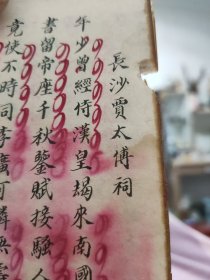 長沙賈太傅祠
年少曾經侍漢皇謁來南國
書留帝座千秋鑒賦接騷人
竟使不時同李廣可